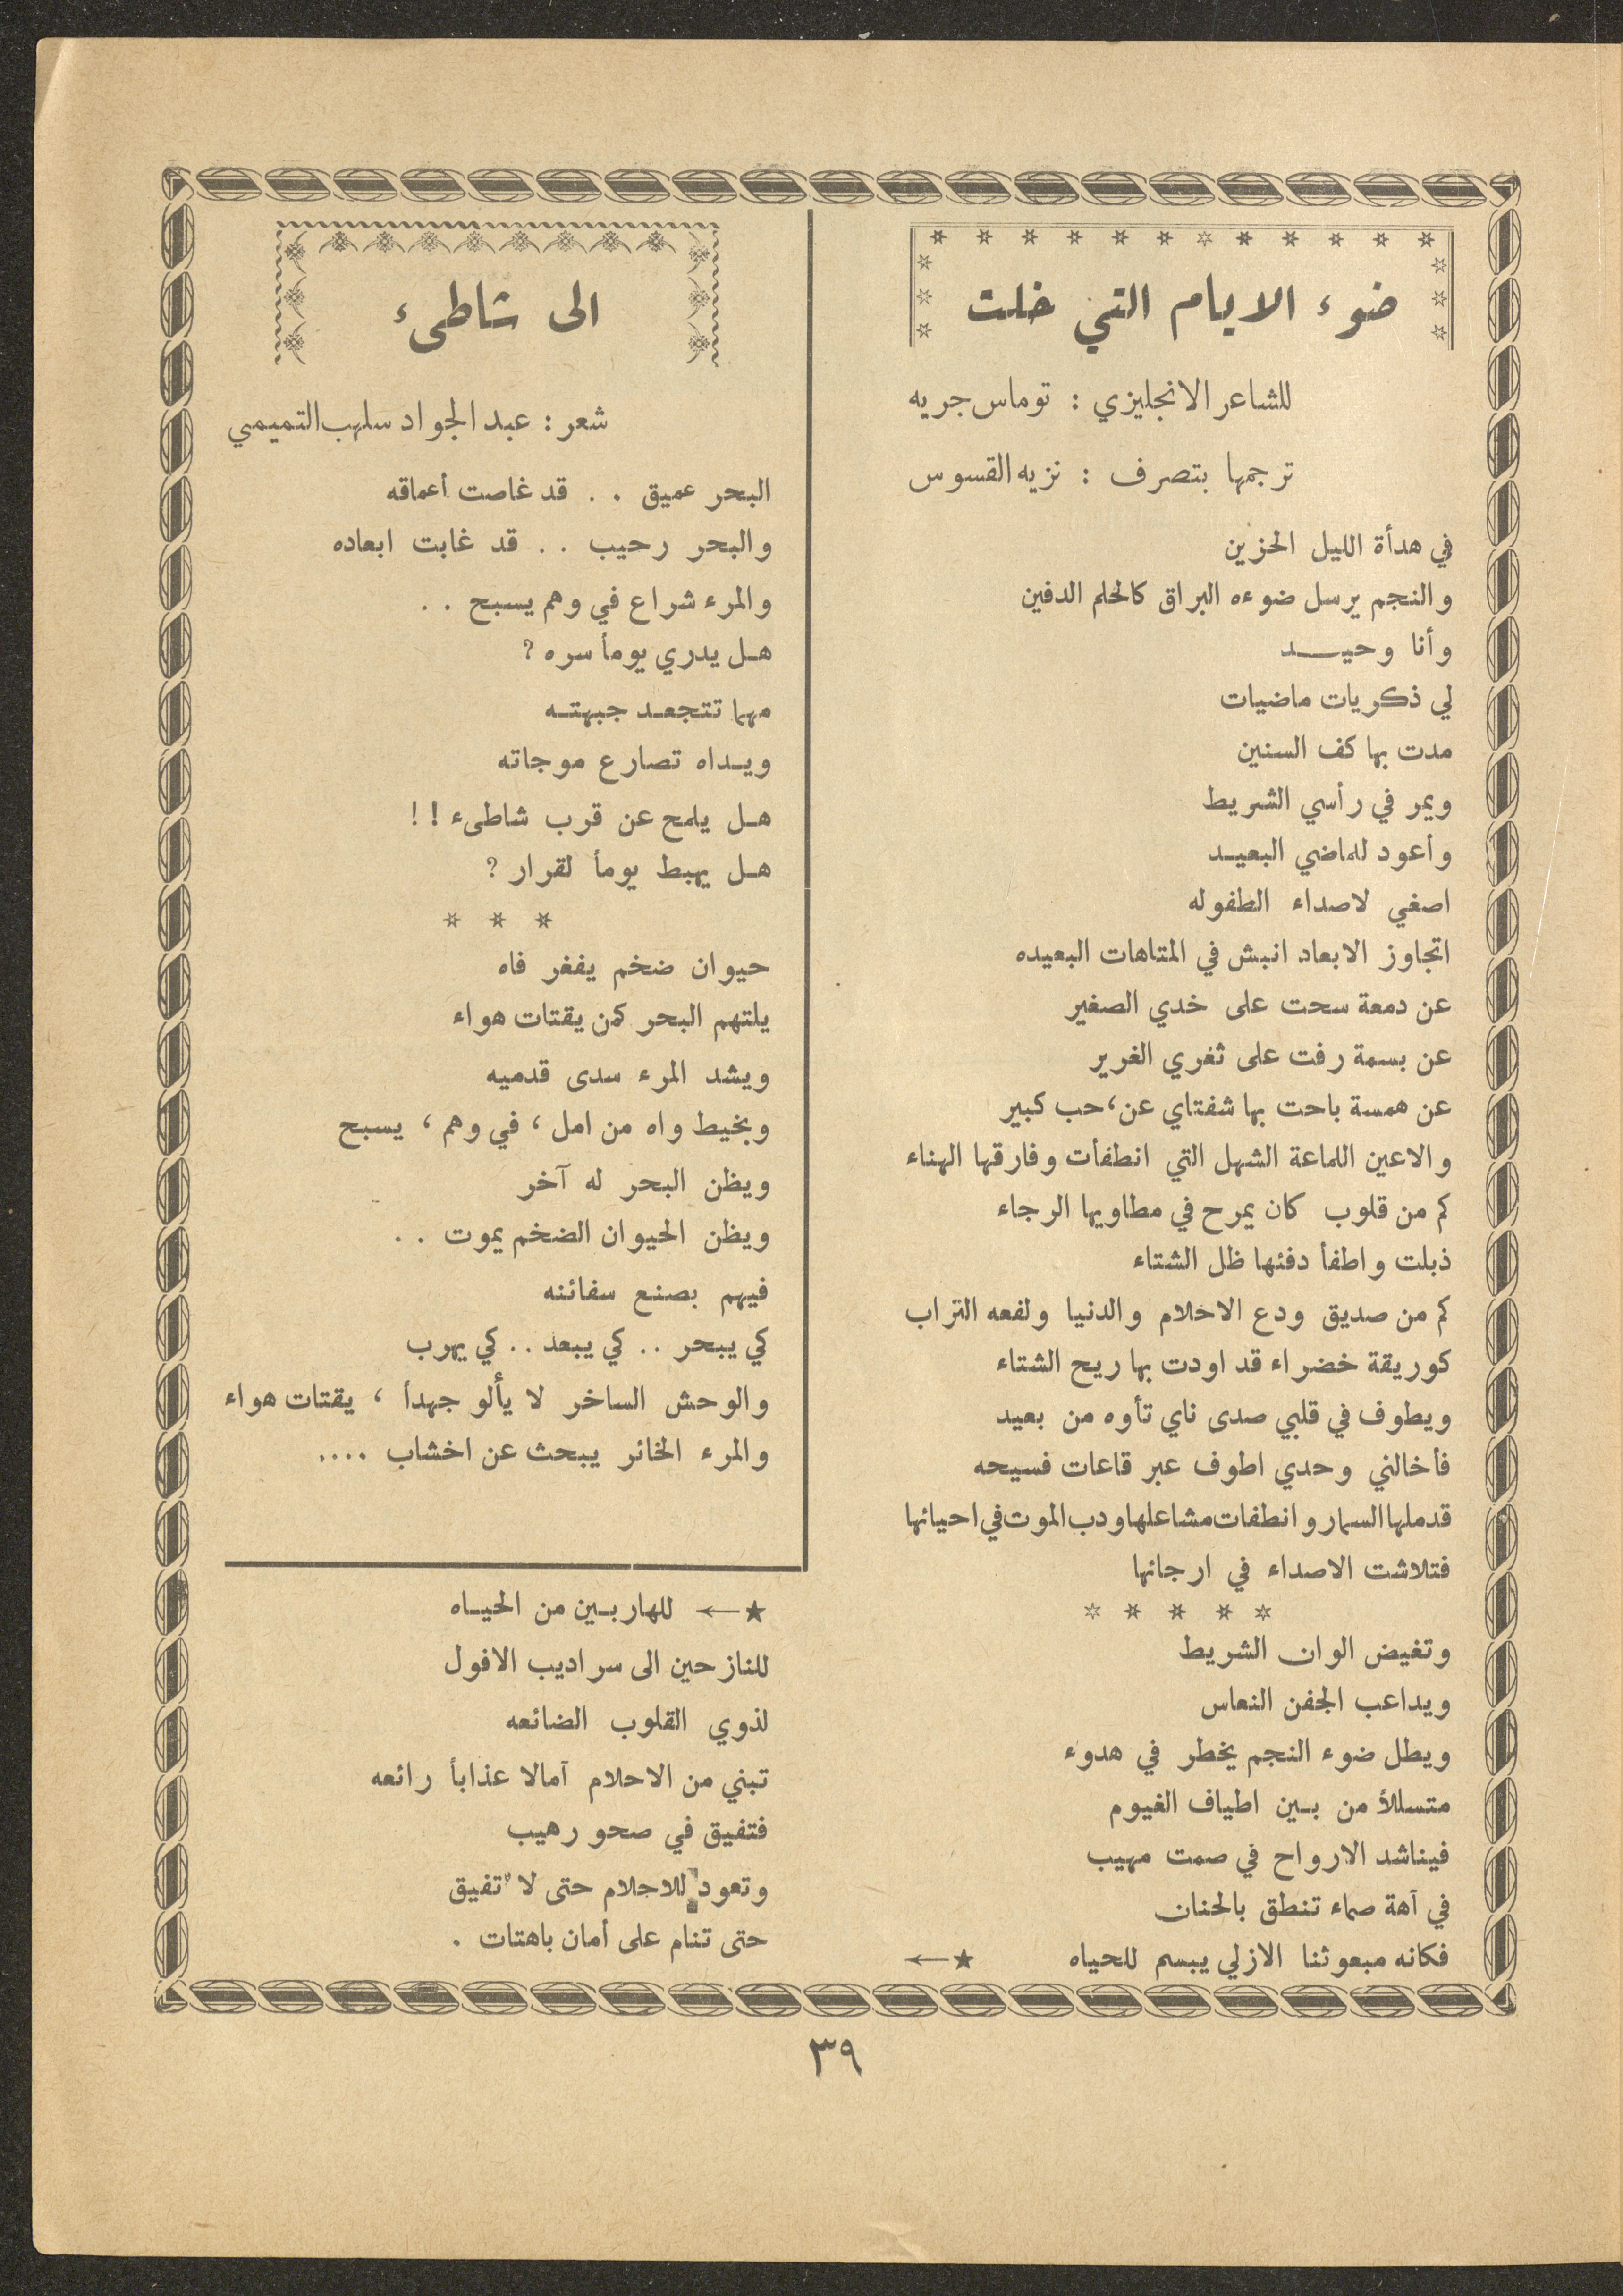 ضوء الايام التي خلت
للشاعر الانجليزي : توماس جريه
ترجمها بتصرف : نزيه القسوس
في هدأة الليل الحزين
والنجم يرسل ضوءه البراق كالحلم الدفين
وأنا وحيـــد
لي ذكريات ماضيات
مدت بها كف السنين
ويمر في رأسي الشريط
وأعود للماضي البعيـد
اصغي لاصداء الطفوله
اتجاوز الابعاد انبش في المتاهات البعيده
عن دمعة سحت على خدي الصغير
عن بسمة رفت على ثغري الغرير
عن همسة باحت بها شفتاي عن، حب كبير
والاعين اللماعة الشهل التي انطفأت وفارقها الهناء
كم من قلوب كان يمرح في مطاويها الرجاء
ذبلت واطفأ دفئها ظل الشتاء
كم من صديق ودع الاحلام والدنيا ولفعه التراب
كوريقة خضراء قد اودت بها ريح الشتاء
ويطوف في قلبي صدى ناي تأوه من بعيد
فأخالني وحدي اطوف عبر قاعات فسيحه
قدملها السمار وانطفات مشاعلها ودب الموت في احيائها
فتلاشت الاصداء في ارجائها
* * * * *
وتغيض الوان الشريط
ويداعب الجفن النعاس
ويطل ضوء النجم يخطر في هدوء
متسللاً من بـين اطياف الغيوم
فيناشد الارواح في صمت مهيب
في آهة صماء تنطق بالحنان
فكانه مبعوثنا الازلي يبسم للحياه ★←
★← للهاربـين من الحيـاه
للنازحين الى سراديب الافول
لذوي القلوب الضائعه
تبني من الاحلام آمالا عذاباً رائعه
فتفيق في صحو رهيب
وتعود للاحلام حتى لا تفيق
حتى تنام على أمان باهتات .
الى شاطىء
شعر : عبد الجواد سلهب التميمي
البحر عميق . . قد غاصت أعماقه
والبحر رحيب . . قد غابت ابعاده
والمرء شراع في وهم يسبح . .
هـل يدري يوماً سره ?
مهما تتجعـد جبهتـه
ويـداه تصارع موجاته
هـل يلمح عن قرب شاطىء ! !
هـل يهبط يوماً لقرار ?
* * *
حيوان ضخم يفغر فاه
يلتهم البحر كمن يقتات هواء
ويشد المرء سدى قدميه
وبخيط واه من امل ، في وهم ، يسبح
ويظن البحر له آخر
ويظن الحيوان الضخم يموت . .
فيهم بصنع سفائنه
كي يبحر . . كي يبعد . . كي يهرب
والوحش الساخر لا يألو جهداً ، يقتات هواء
والمرء الخائر يبحث عن اخشاب ....
٣٩